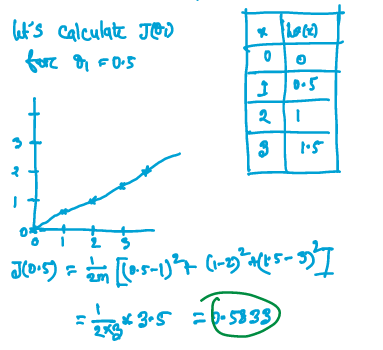 let's calculate J(θ₁)
for θ₁ = 0.5
x hθ(x)
0 0
1 0.5
2 1
3 1.5
3
2
1
0
0 1 2 3
J(0.5) = 1/2m [(0.5-1)² + (1-2)² + (1.5-3)²]
= 1/2×3 * 3.5 = 0.5833